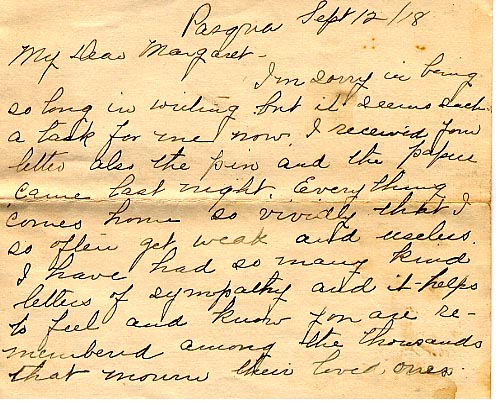 Pasqua Sept 12/18
My Dear Margaret-
I'm sorry in being
so long in writing but it seems such
a task for me now. I received your
letter also the pin and the paper
came last night. Everything
comes home so vividly that I
so often get weak and useless.
I have had so many kind
letters of sympathy and it helps
to feel and know you are re-
membered among the thousands
that mourn their loved ones.